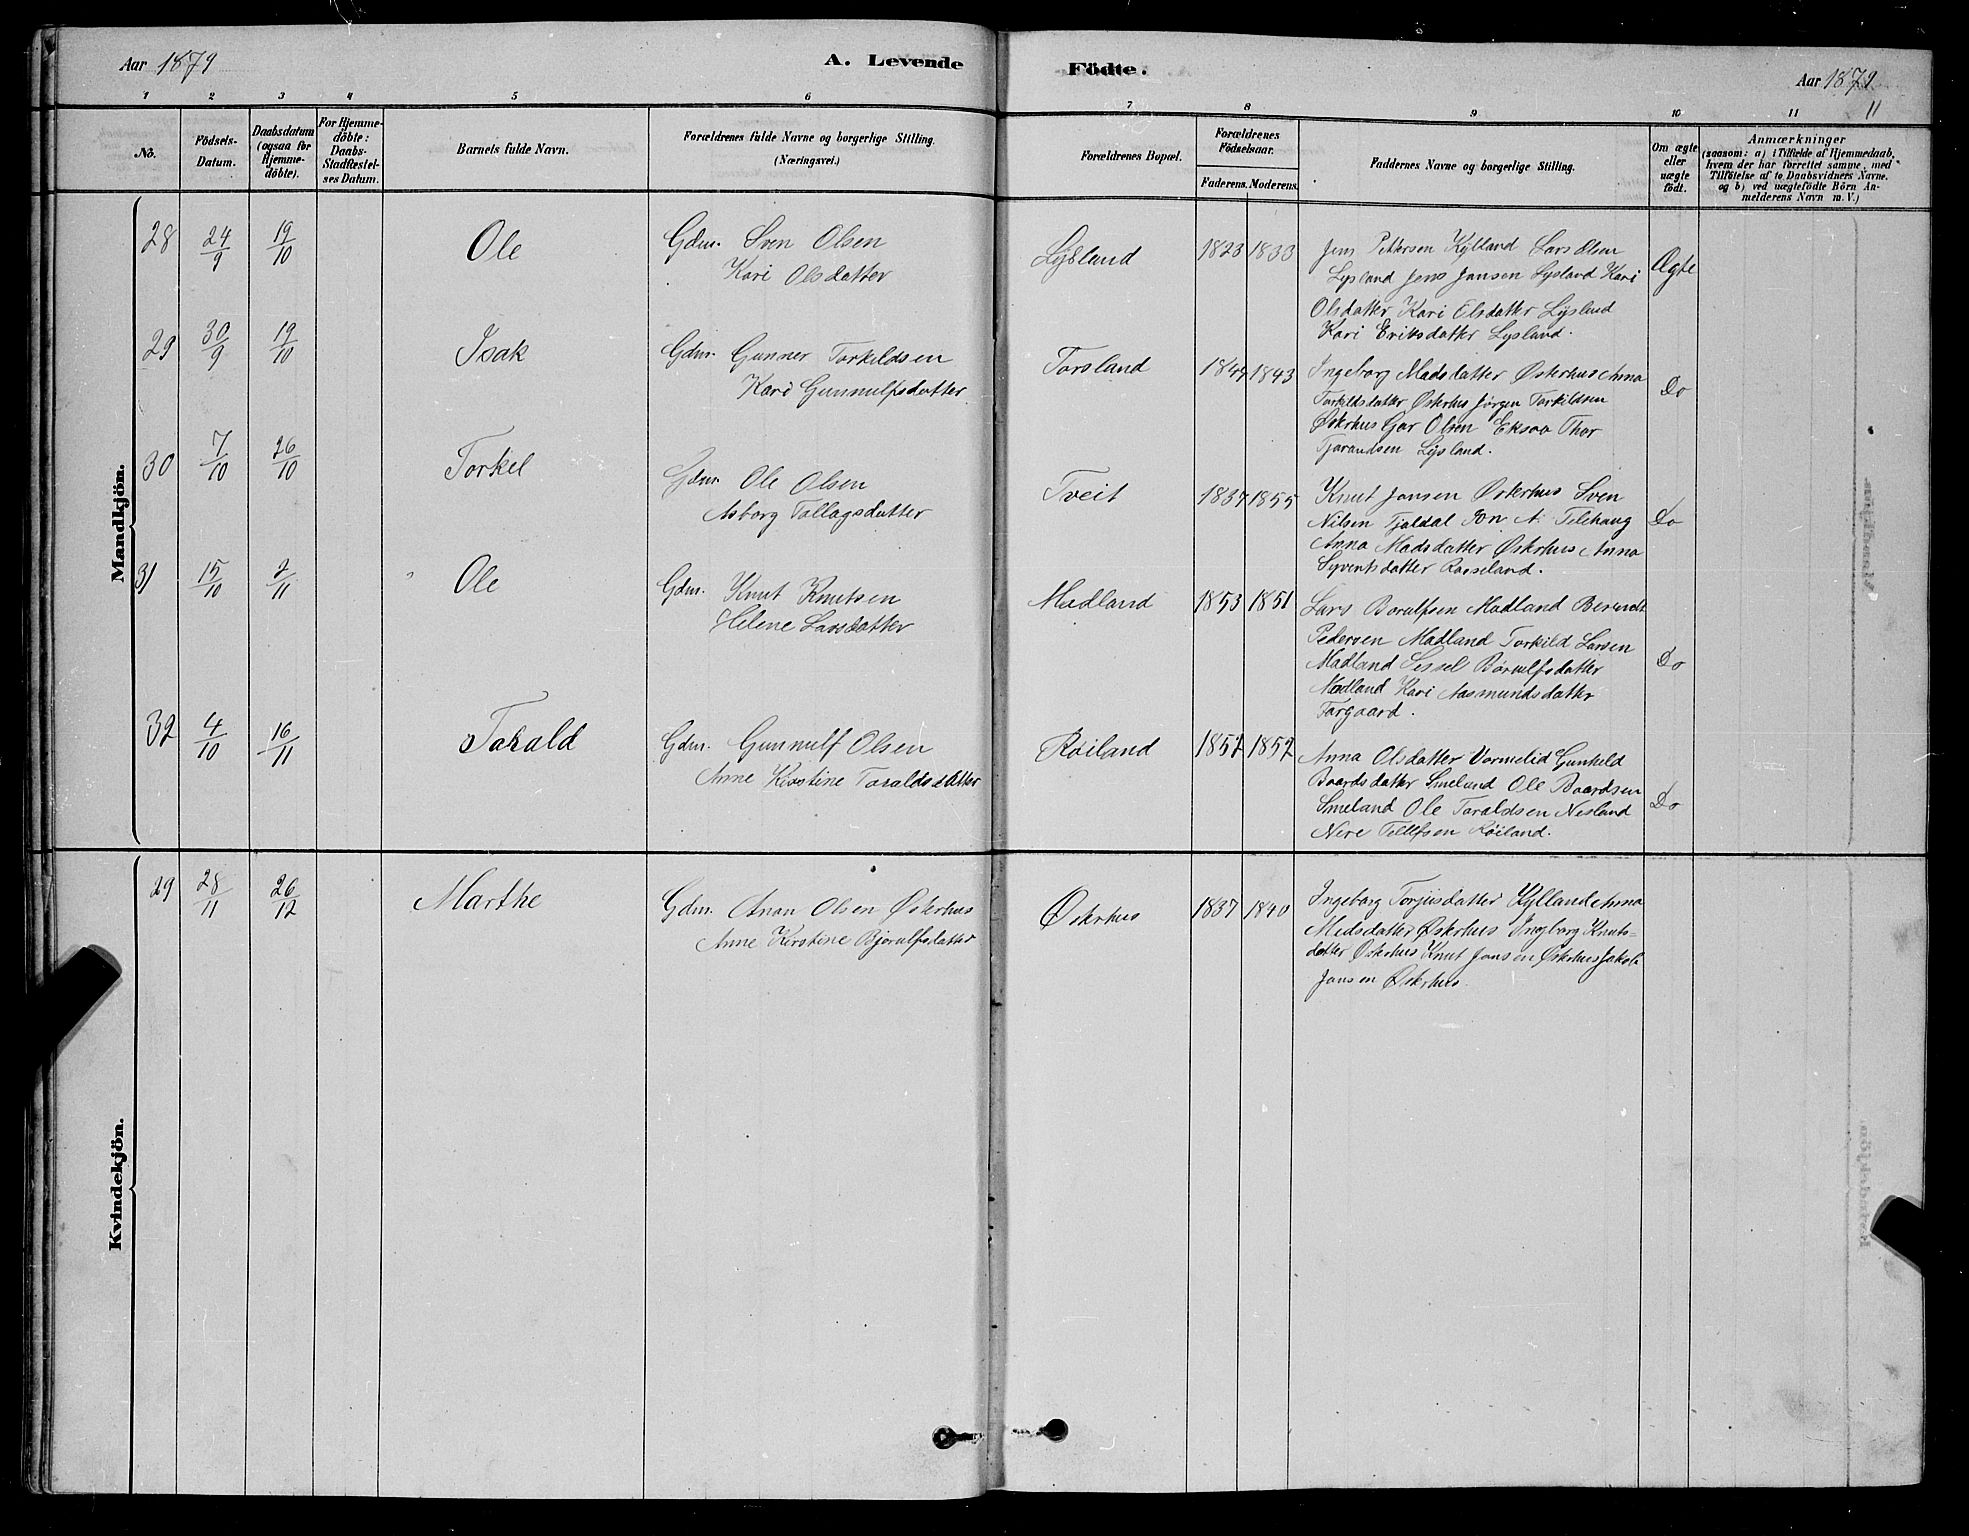 Aar 1879
A. Levende
Födte.
Aar 1879
11
1 2 3 4 5 6 7 8 9 10 11
No.
Födsels-
Datum.
Daabsdatum
(ogsaa for
Hjemme-
döbte).
For Hjemme-
döbte:
Daabs-
Stadfæstel-
ses Datum.
Barnets fulde Navn.
Forældrenes fulde Navne og borgerlige Stilling.
(Næringsvei.)
Forældrenes Bopæl.
Forældrenes
Födselsaar.
Faderens. Moderens.
Faddernes Navne og borgerlige Stilling.
Om ægte
eller
uægte
födt.
Anmærkninger
(saasom: a) i Tilfælde af Hjemmedaab,
hvem der har forrettet samme, med
Tilföielse af to Daabsvidners Navne.
og b) ved uægtefödte Börn An-
melderens Navn m. V.)
Mandkjön.
28 24/9 19/10 Ole
Gdm. Sven Olsen
Kari Olsdatter
Lysland 1823 1833
Jens Pettersen Kylland Lars Olsen
Lysland Jens Jansen Lysland Kari
Olsdatter Kari Olsdatter Lysland
Kari Eriksdatter Lysland.
Ægte
29 30/9 19/10 Isak
Gdm. Gunner Torkildsen
Kari Gunnulfsdatter
Torsland 1847 1843
Ingeborg Madsdatter Øskrhus Anna
Torkildsdatter Øskrhus Jörgen Torkildsen
Øskrhus Gar Olsen Eksaa Thor
Tjarandsen Lysland.
Do
30 7/10 26/10 Torkel
Gdm. Ole Olsen
Asborg Tallagsdatter
Tveit 1837 1855
Knut Jansen Øskrhus Sven
Nilsen Tjaldal Jon A. Telehaug
Anna Madsdatter Øskrhus Anna
Syvertsdatter Rosseland.
Do
31 15/10 2/11 Ole
Gdm. Knut Knutsen
Helene Larsdatter
Madland 1853 1851
Lars Borulfsen Madland Berendt
Pedersen Madland Torkild Larsen
Madland Sissel Börulfsdatter
Madland Kari Aasmundsdatter
Torgaard.
Do
32 4/10 16/11 Tarald
Gdm. Gunnulf Olsen
Anne Kirstine Taraldsdatter
Röiland 1852 1852
Anna Olsdatter Vormelid Gunheld
Baardsdatter Smeland Ole Baardsen
Smeland Ole Taraldsen Nesland
Nere Tellefsen Röiland.
Do
Kvindekjön.
29 28/11 26/12 Marthe
Gdm. Anan Olsen Øskrhus
Anne Kirstine Bjorulfsdatter
Øskrhus 1837 1840
Ingeborg Torjusdatter Kylland Anna
Madsdatter Øskrhus Ingborg Knuts=
datter Øskrhus Knut Jansen Øskrhus Jakob
Jansen Øskrhus.